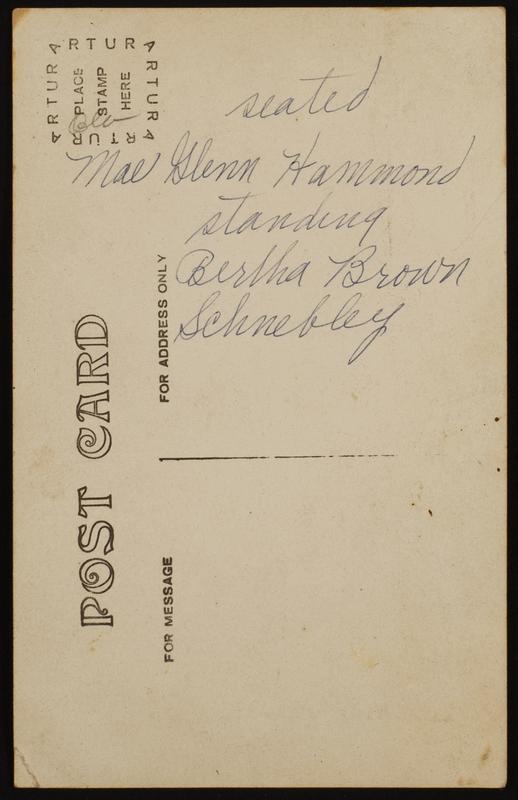 ARTURA
ARTURA
ARTURA
ARTURA
PLACE
STAMP
HERE
seated
Mae Glenn Hammond
standing
Bertha Brown
Schnebley
POST CARD
FOR ADDRESS ONLY
FOR MESSAGE